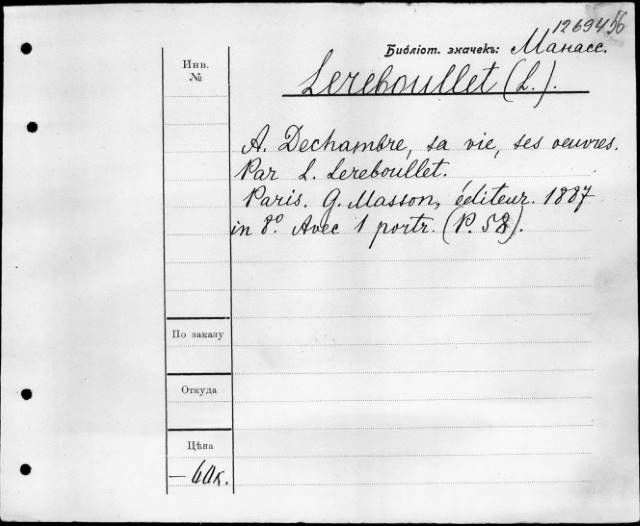 1269456
Библіот. значекъ: Манасс.
Инв.
№
Lereboullet (L.).
A. Dechambre, sa vie, ses oeuvres.
Par L. Lereboullet.
Paris. G. Masson, éditeur. 1887
in 8.° Avec 1 portr. (P. 58).
По заказу
Откуда
Цѣна
— 60к.